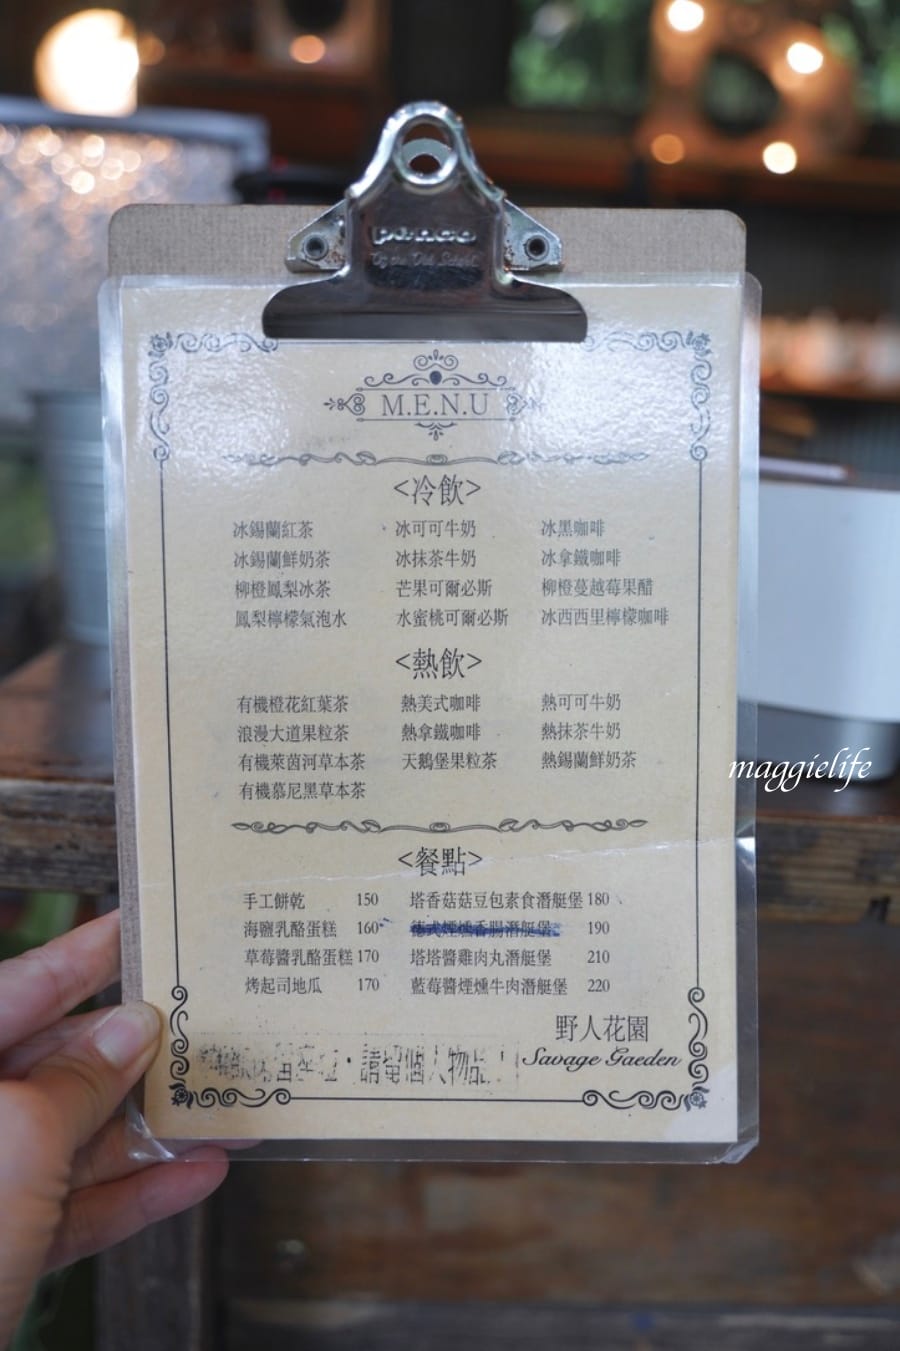 penco
M.E.N.U
<冷飲>
冰錫蘭紅茶 冰可可牛奶 冰黑咖啡
冰錫蘭鮮奶茶 冰抹茶牛奶 冰拿鐵咖啡
柳橙鳳梨冰茶 芒果可爾必斯 柳橙蔓越莓果醋
鳳梨檸檬氣泡水 水蜜桃可爾必斯 冰西西里檸檬咖啡
<熱飲>
有機橙花紅葉茶 熱美式咖啡 熱可可牛奶
浪漫大道果粒茶 熱拿鐵咖啡 熱抹茶牛奶
有機萊茵河草本茶 天鵝堡果粒茶 熱錫蘭鮮奶茶
有機慕尼黑草本茶
<餐點>
手工餅乾 150 塔香菇菇豆包素食潛艇堡 180
海鹽乳酪蛋糕 160 德式煙燻香腸潛艇堡 190
草莓醬乳酪蛋糕 170 塔塔醬雞肉丸潛艇堡 210
烤起司地瓜 170 藍莓醬煙燻牛肉潛艇堡 220
野人花園
Savage Gaeden
請留個人物品
maggielife